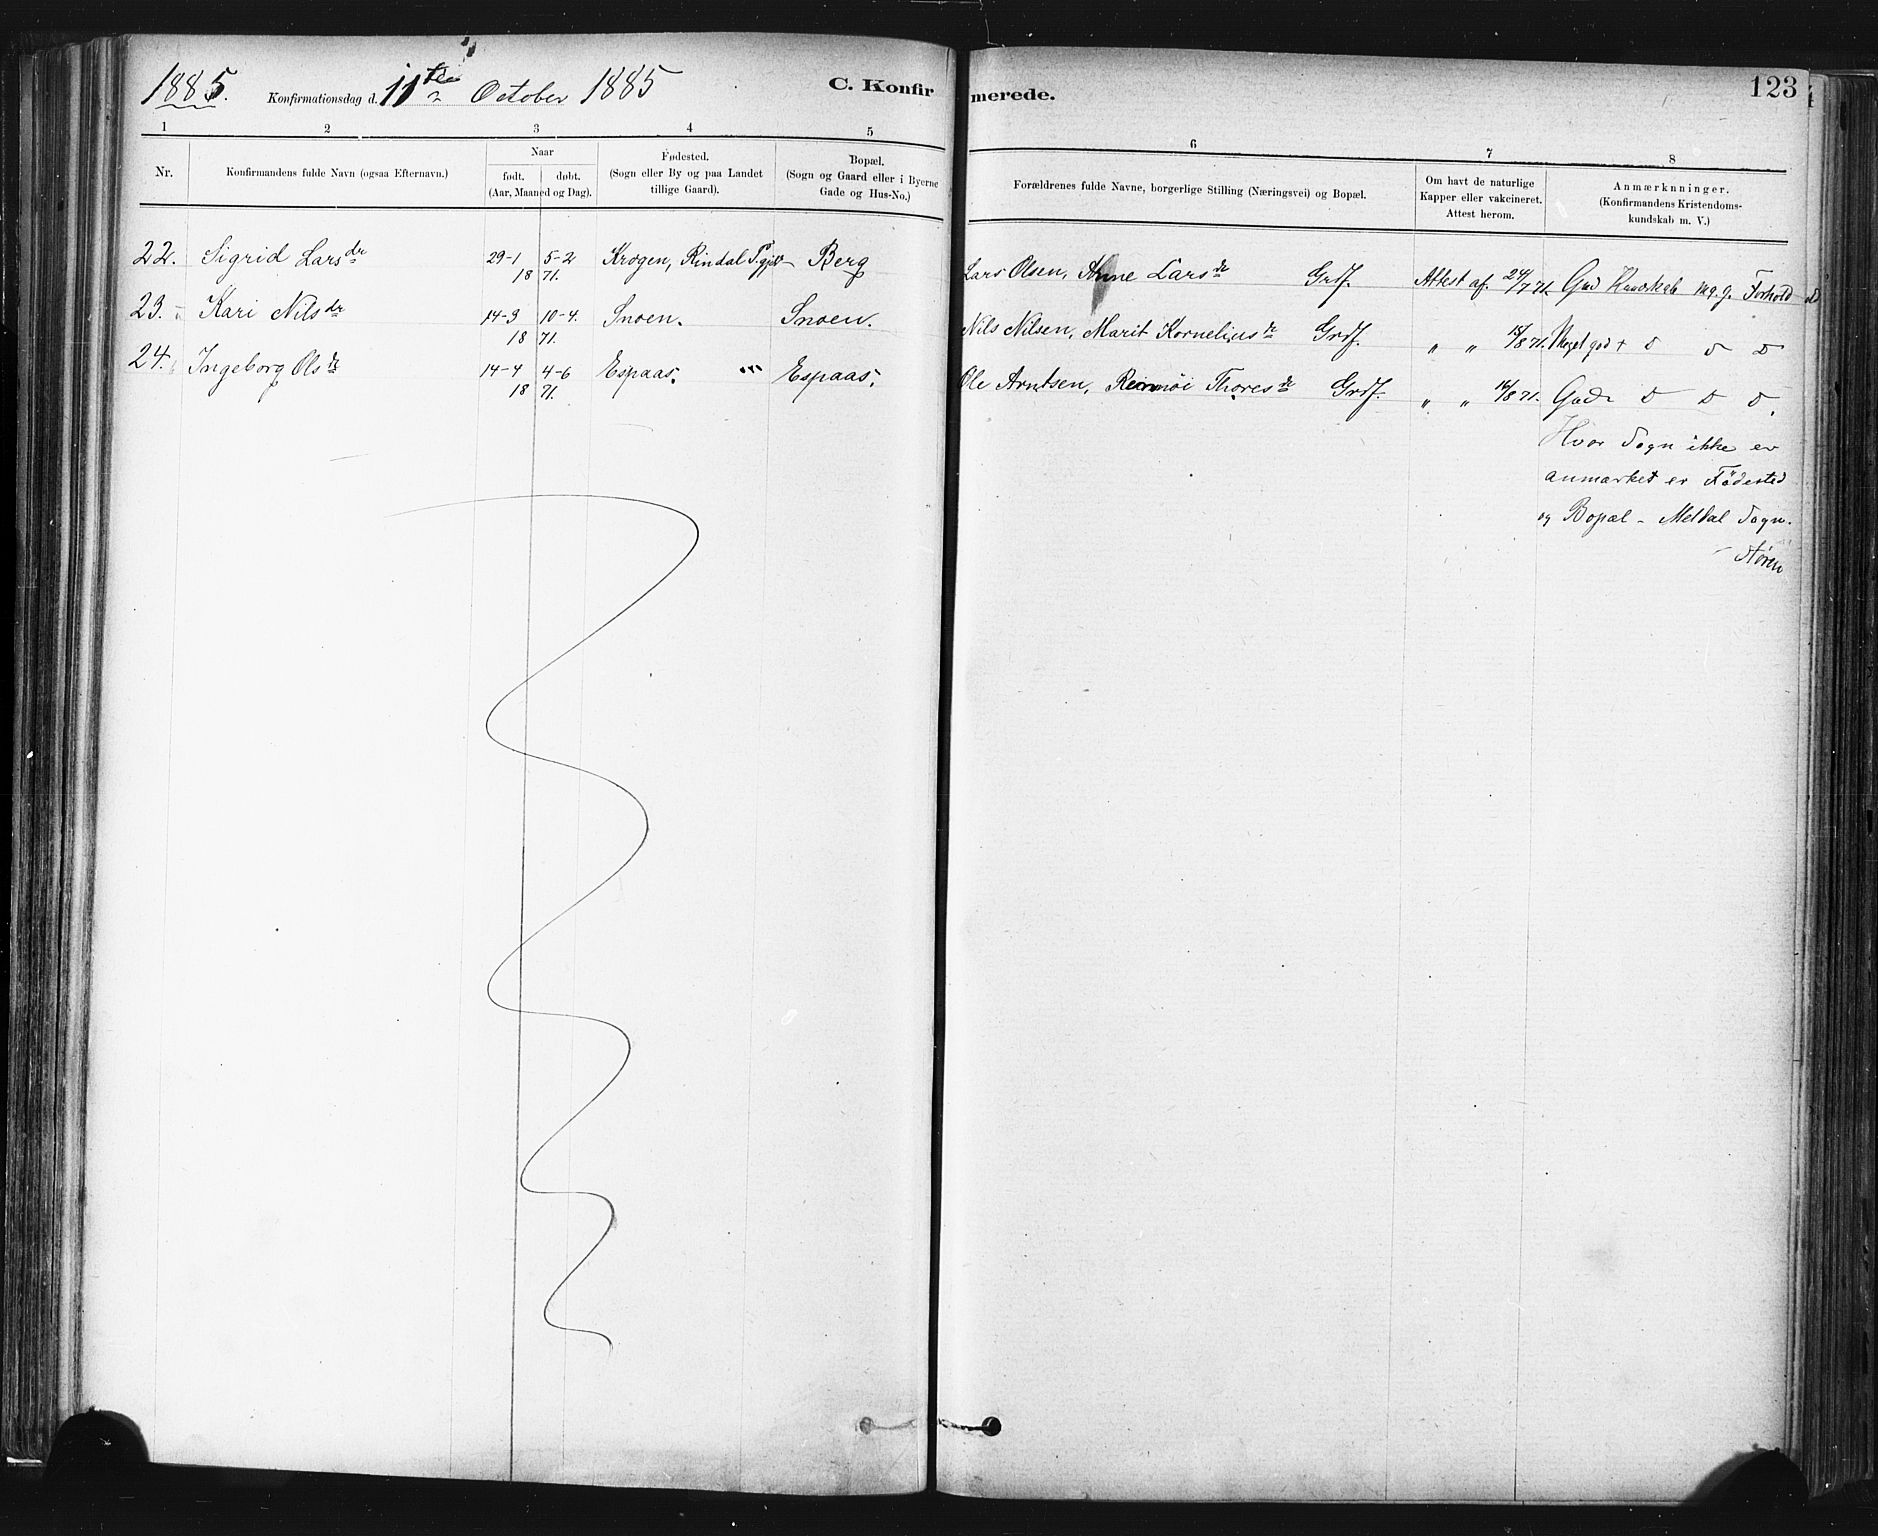 1885. Konfirmationsdag d. 11te October 1885 C. Konfirmerede. 123
1 2 3 4 5 6 7 8
Nr.
Konfirmandens fulde Navn (ogsaa Efternavn.)
Naar
født. døbt.
(Aar, Maaned og Dag).
Fødested.
(Sogn eller By og paa Landet
tillige Gaard).
Bopæl.
(Sogn og Gaard eller i Byerne
Gade og Hus-No.)
Forældrenes fulde Navne, borgerlige Stilling (Næringsvei) og Bopæl.
Om havt de naturlige
Kapper eller vakcineret.
Attest herom.
Anmærkninger.
(Konfirmandens Kristendoms-
kundskab m. V.)
22. Sigrid Larsdr 29-1 5-2 Krogen, Rindal P.gjeld Berg Lars Olsen, Anne Larsdr Grdf. Attest af. 24/7 71. God Kundskab mg. g. Forhold
18 71.
23. Kari Nilsdr 14-3 10-4. Snoen. Snoen. Nils Nilsen, Marit Korneliusdr Grdf. " " /8 71. Meget god + D D D
18 71.
24. Ingeborg Olsdr 14-4 4-6 Espaas. Espaas. Ole Arntsen, Thoresdr Grdf. " " /8 71. God D D D.
18 71.
Hvor Sogn ikke er
anmærket er Födested
og Bopæl - Meldal Sogn.
Støren